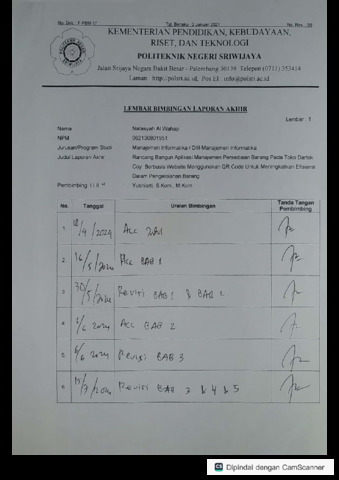 No. Dok. : F-PBM-17 Tgl. Berlaku : 3 Januari 2021 No. Rev. : 00
KEMENTERIAN PENDIDIKAN, KEBUDAYAAN,
RISET, DAN TEKNOLOGI
POLITEKNIK NEGERI SRIWIJAYA
Jalan Srijaya Negara Bukit Besar - Palembang 30139 Telepon (0711) 353414
Laman : http://polsri.ac.id, Pos El : info@polsri.ac.id
LEMBAR BIMBINGAN LAPORAN AKHIR
Lembar : 1
Nama
NPM
Jurusan/Program Studi : Manajemen Informatika / DIII Manajemen Informatika
Judul Laporan Akhir : Rancang Bangun Aplikasi Manajemen Persediaan Barang Pada Toko
Berbasis Website Menggunakan QR Code Untuk Meningkatkan Efisiensi
Dalam Pengelolaan Barang
Pembimbing I / II : Yusniarti, S.Kom., M.Kom
No. Tanggal Uraian Bimbingan Tanda Tangan Pembimbing
1 /4 /2024 Acc
2. 16/5/2024 Acc BAB 1
3 30/5/2024 Revisi BAB 1 &
4 /6 2024 Acc BAB 2
5 6/6 2024 Revisi BAB 3
6 /7/2024 Revisi BAB 3 & 4 & 5
CS Dipindai dengan CamScanner